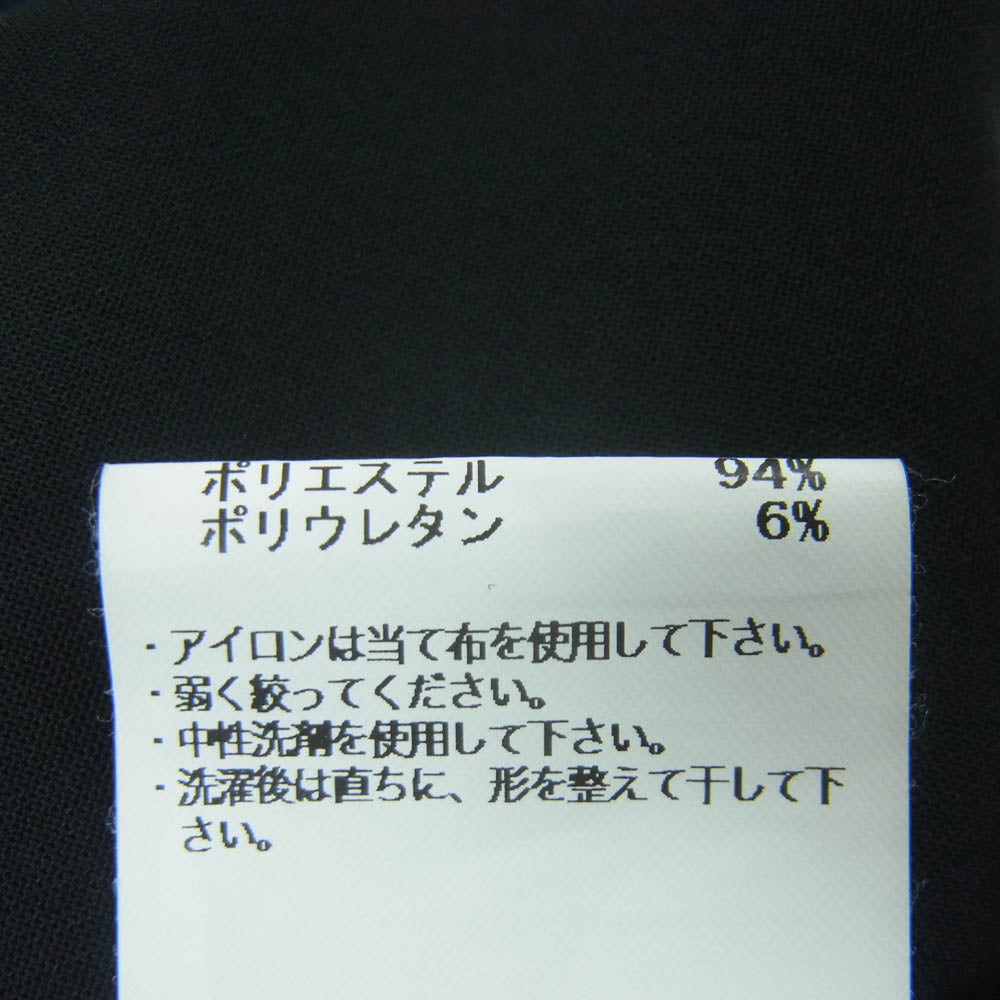 ポリエステル 94%
ポリウレタン 6%
・アイロンは当て布を使用して下さい。
・弱く絞ってください。
・中性洗剤を使用して下さい。
・洗濯後は直ちに、形を整えて干して下
さい。